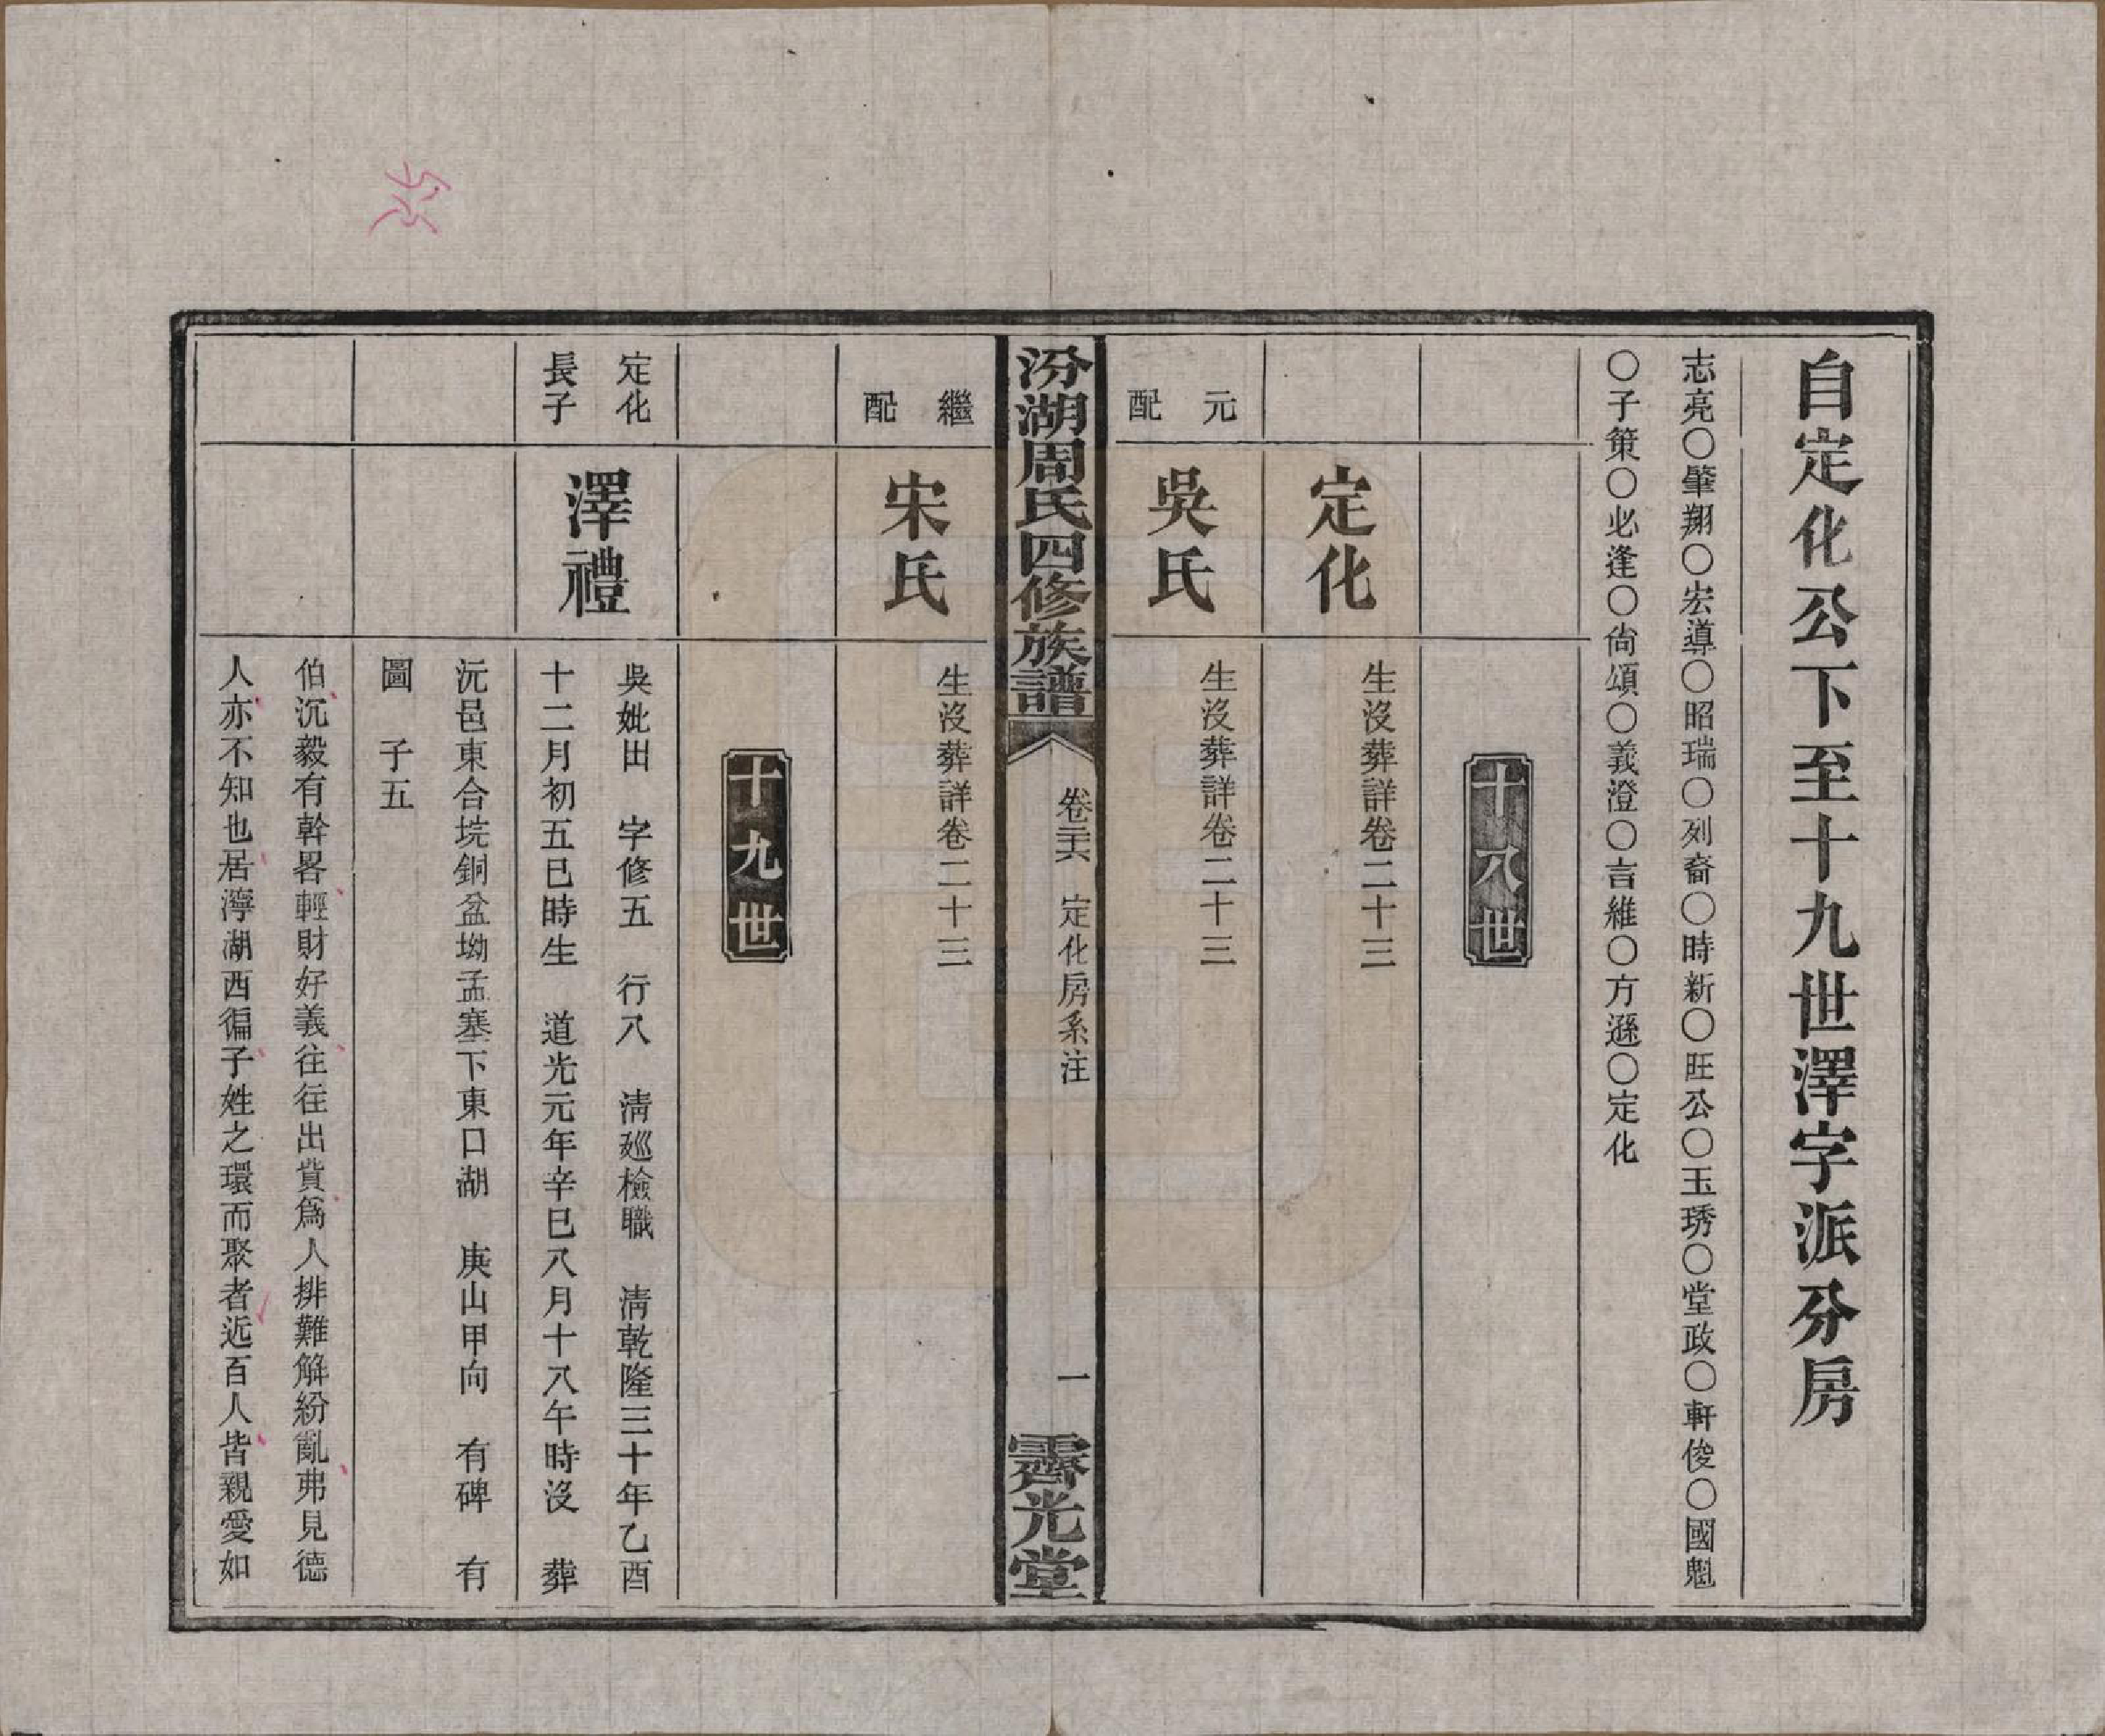 自定化公下至十九世澤字派分房
志亮〇肇翔〇宏導〇昭瑞〇列裔〇時新〇旺公〇玉琇〇堂政〇軒俊〇國魁
〇子策〇必逢〇尙頌〇義澄〇言維〇方遜〇定化
十八世
定化
生沒葬詳卷二十三
元配
吳氏
生沒葬詳卷二十三
汾湖周氏四修族譜
卷二十六 定化房系注
一
霽光堂
繼配
宋氏
生沒葬詳卷二十三
十九世
定化
長子
澤禮
吳妣出 字修五 行八 淸廵檢職 淸乾隆三十年乙酉
十二月初五巳時生 道光元年辛巳八月十八午時沒 葬
沅邑東合垸銅盆坳孟塞下東口湖 庚山甲向 有碑 有
圖 子五
伯沉毅有幹畧輕財好義往往出貲爲人排難解紛亂弗見德
人亦不知也居濘湖西徧子姓之環而聚者近百人皆親愛如